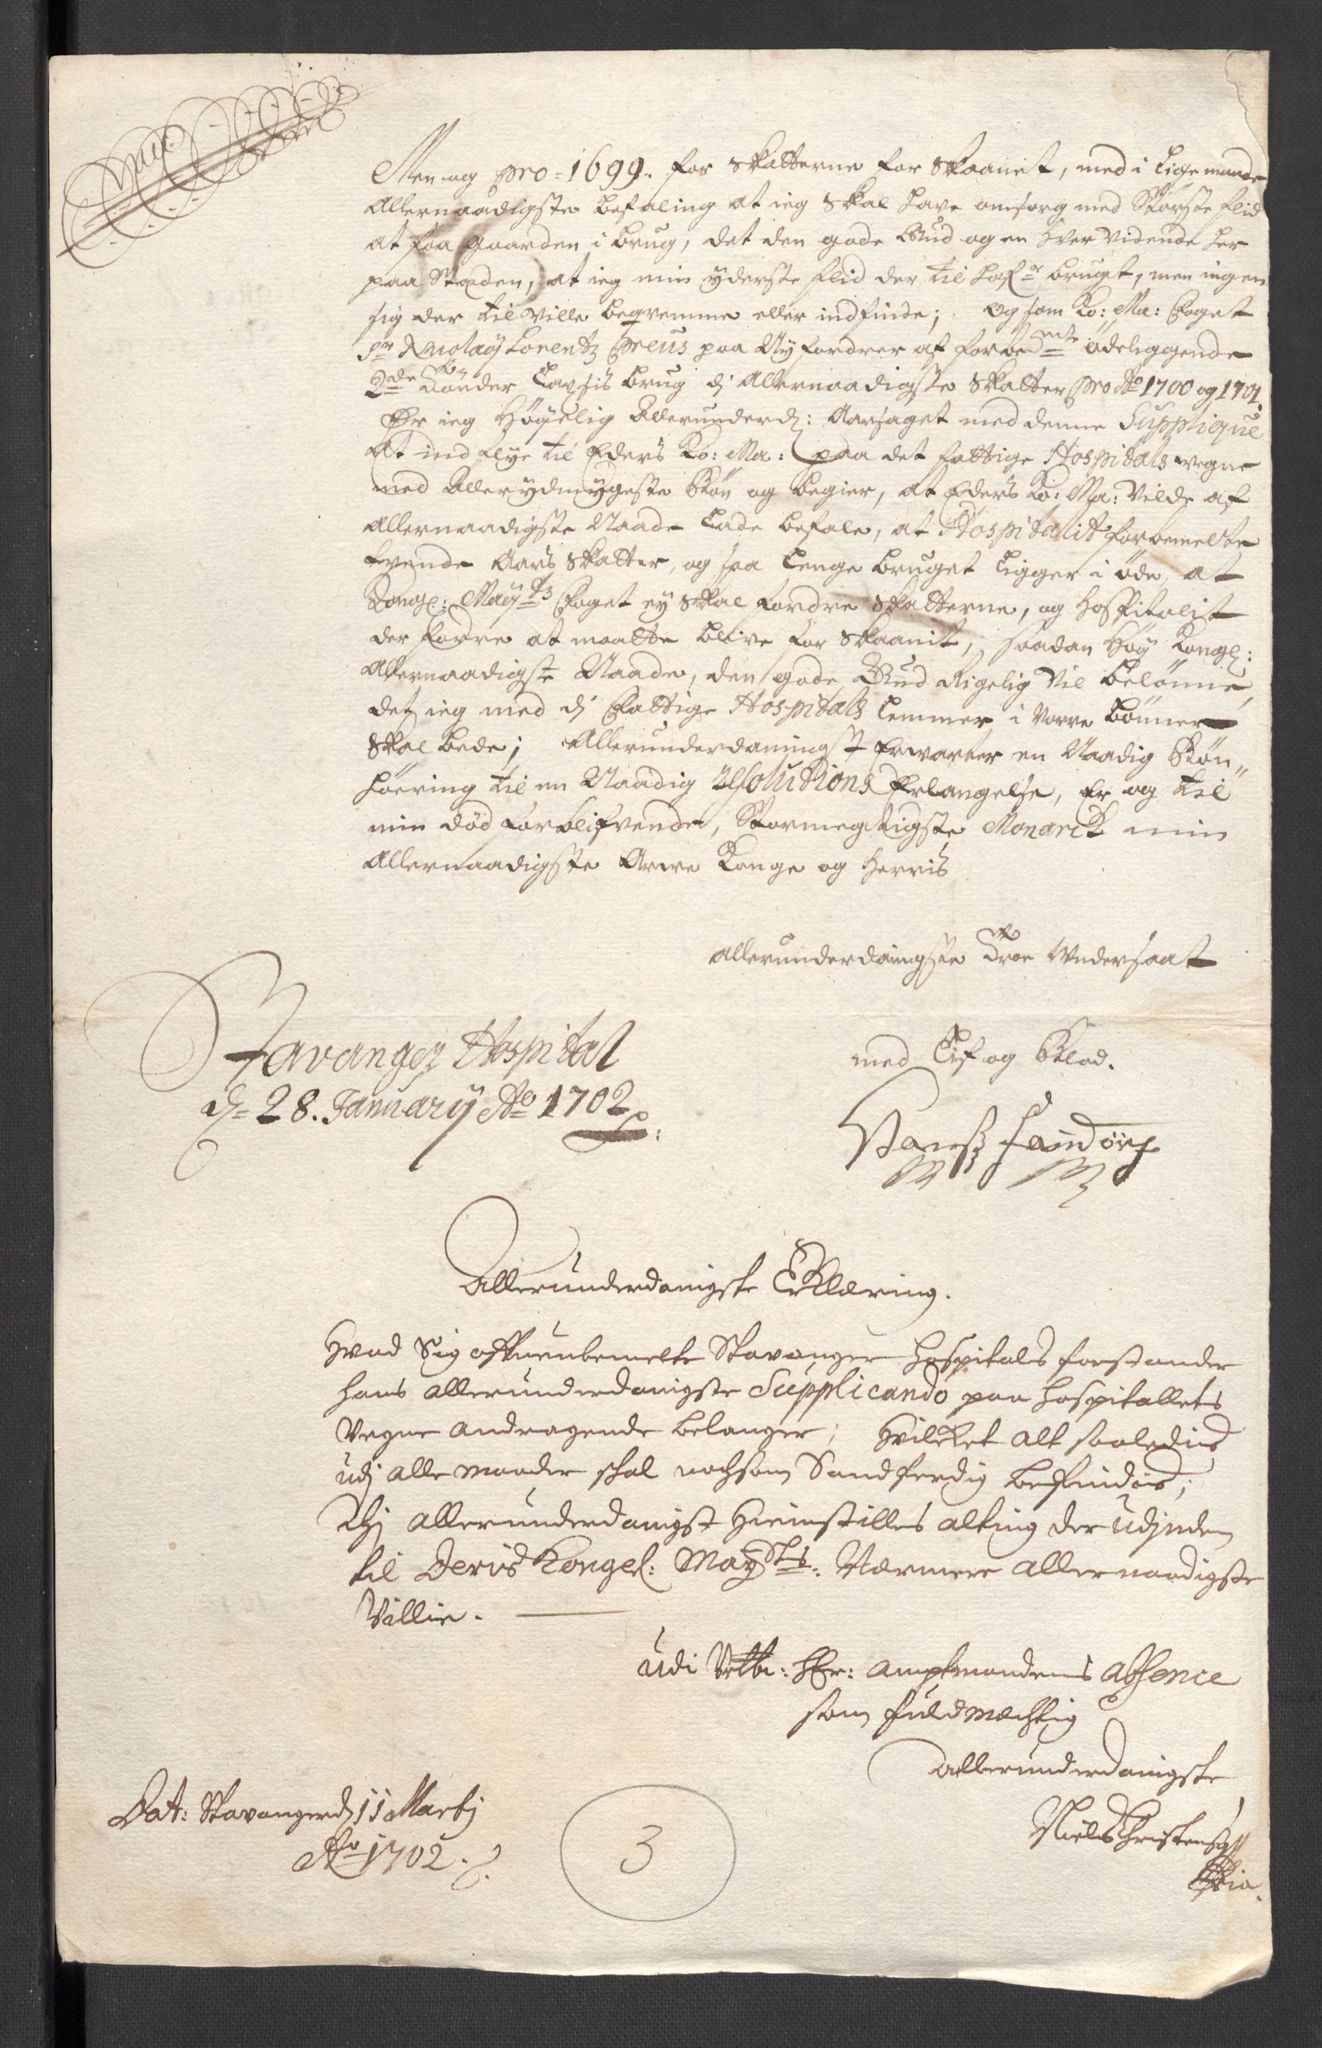 Men og pro 1699. for skatterne for skaanet, med i lige maade
Allernaadigste befaling at ieg skal have omsorg med største flid
at faa gaarden i brug, det den gode Gud og en hver vidende her
paa Staden, at ieg min yderste flid der til hafr brugt, men ingen
sig der til ville beqvemme eller indfinde; Og som Ko: Ma: Foget
Sr Nicolaÿ Lorentz Preus paa Nÿ fordrer af forbemte ødeliggende
2de bønder brug di Allernaadigste skatter pro Ao 1700 og 1701.
Er ieg Høÿelig Allerunderd: Aarsaget med denne Supplique
at ind flye til Eders Ko: Ma: paa det fattige Hospitals wegne
med Allerydmygeste bøn og begier, at Eders Ko: Ma: vilde af
Allernaadigste Naade lade befale, at Hospitalit forbemelte
tvende Aars skatter, og saa lenge bruget ligger i øde, at
Kongl: Maÿts Foget eÿ skal fordre skatterne, og Hospitalit
der forre at maatte blive for skaanit, saadan Høÿ Kongl:
Allernaadigste Naade, den gode Gud Rigelig vil belønne,
det ieg med di Fattige Hospitals Lemmer i vorre bønner
skal bede; Allerunderdaningst Erwarter en Naadig bøn„
høering til en Naadig Resolutions Erlangelse, Er og til
min død forblifvende, Stormegtigste Monarck min
Allernaadigste Arwe Konge og Herris
allerunderdaingste troe Undersaat
Stavanger Hospital
d= 28. January Ao 1702
med Lif og Blod.
Allerunderdanigste Erklæring.
Hvad Sig offuenbemelte Stavanger Hospitals forstander
hans allerunderdanigste Supplicando paa hospitallets
Vegne andragende belanger; Hvilcket alt saaledis
udj alle maader skal nochsom Sandferdig befindis;
Thj allerunderdanigst Hiemstilles alting der udjnden
til Deris Kongel: Maÿsts: Nærmere allernaadigste
Villie.
Udi Velbr: Hr: Amptmandens absence
som fuldmechtig
Allerunderdanigste
Niels Christensøn
Dat: Stavanger d 11 Martij
Ao 1702.
3